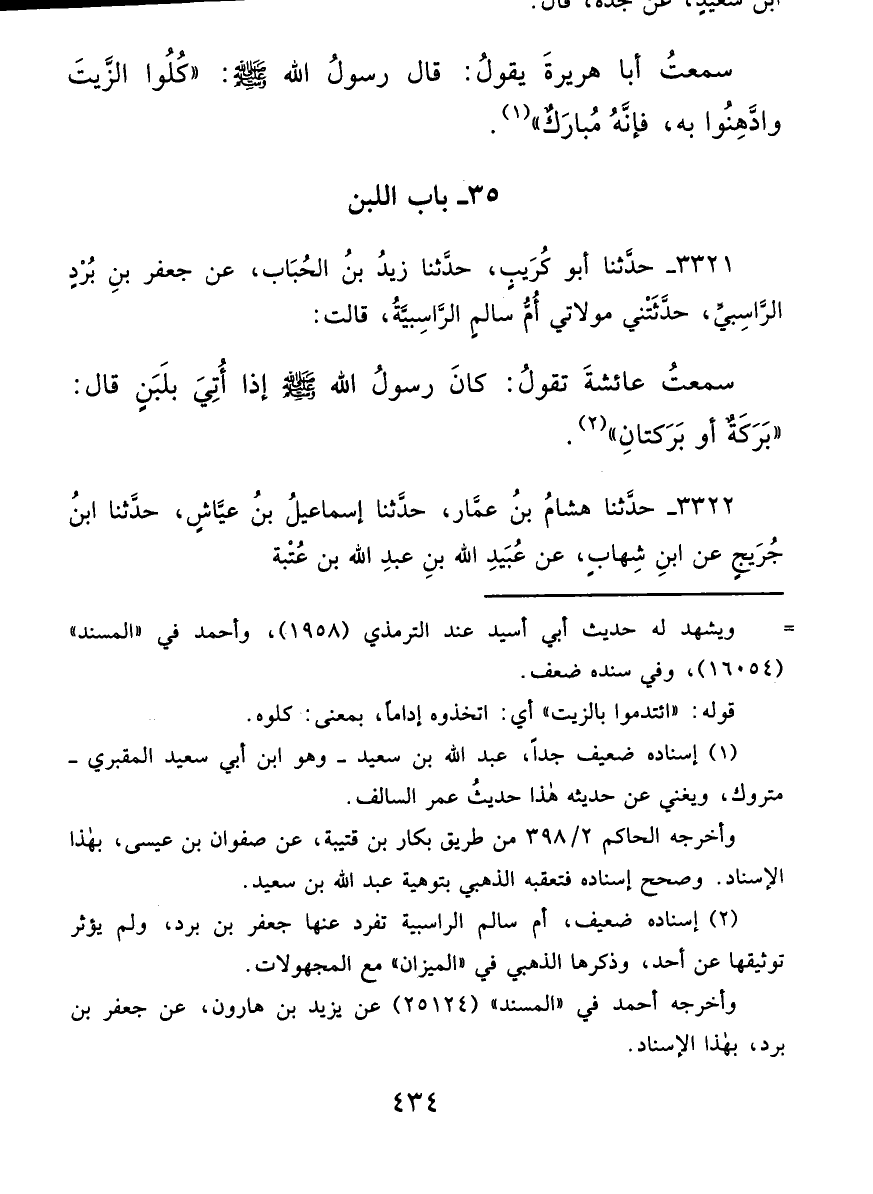 ابن سعيدٍ، عن جده، قال:
سمعتُ أبا هريرةَ يقولُ: قال رسولُ الله ﷺ: «كُلُوا الزَّيتَ
وادَّهِنُوا به، فإنَّهُ مُبارَكٌ»(١).
٣٥ـ باب اللبن
٣٣٢١ـ حدَّثنا أبو كُرَيبٍ، حدَّثنا زيدُ بنُ الحُبَاب، عن جعفر بنِ بُرْدٍ
الرَّاسِبيِّ، حدَّثَتْني مولاتي أُمُّ سالمٍ الرَّاسِبيَّةُ، قالت:
سمعتُ عائشةَ تقولُ: كانَ رسولُ الله ﷺ إذا أُتِيَ بلَبَنٍ قال:
«بَرَكَةٌ أو بَرَكتانِ»(٢).
٣٣٢٢ـ حدَّثنا هشامُ بنُ عمَّار، حدَّثنا إسماعيلُ بنُ عيَّاشٍ، حدَّثنا ابنُ
جُرَيجٍ عن ابنِ شِهابٍ، عن عُبَيدِ الله بنِ عبدِ الله بن عُتْبة
= ويشهد له حديث أبي أسيد عند الترمذي (١٩٥٨)، وأحمد في «المسند»
(١٦٠٥٤)، وفي سنده ضعف.
قوله: «ائتدموا بالزيت» أي: اتخذوه إداماً، بمعنى: كلوه.
(١) إسناده ضعيف جداً، عبد الله بن سعيد ـ وهو ابن أبي سعيد المقبري ـ
متروك، ويغني عن حديثه هٰذا حديثُ عمر السالف.
وأخرجه الحاكم ٣٩٨/٢ من طريق بكار بن قتيبة، عن صفوان بن عيسى، بهٰذا
الإسناد. وصحح إسناده فتعقبه الذهبي بتوهية عبد الله بن سعيد.
(٢) إسناده ضعيف، أم سالم الراسبية تفرد عنها جعفر بن برد، ولم يؤثر
توثيقها عن أحد، وذكرها الذهبي في «الميزان» مع المجهولات.
وأخرجه أحمد في «المسند» (٢٥١٢٤) عن يزيد بن هارون، عن جعفر بن
برد، بهٰذا الإسناد.
٤٣٤